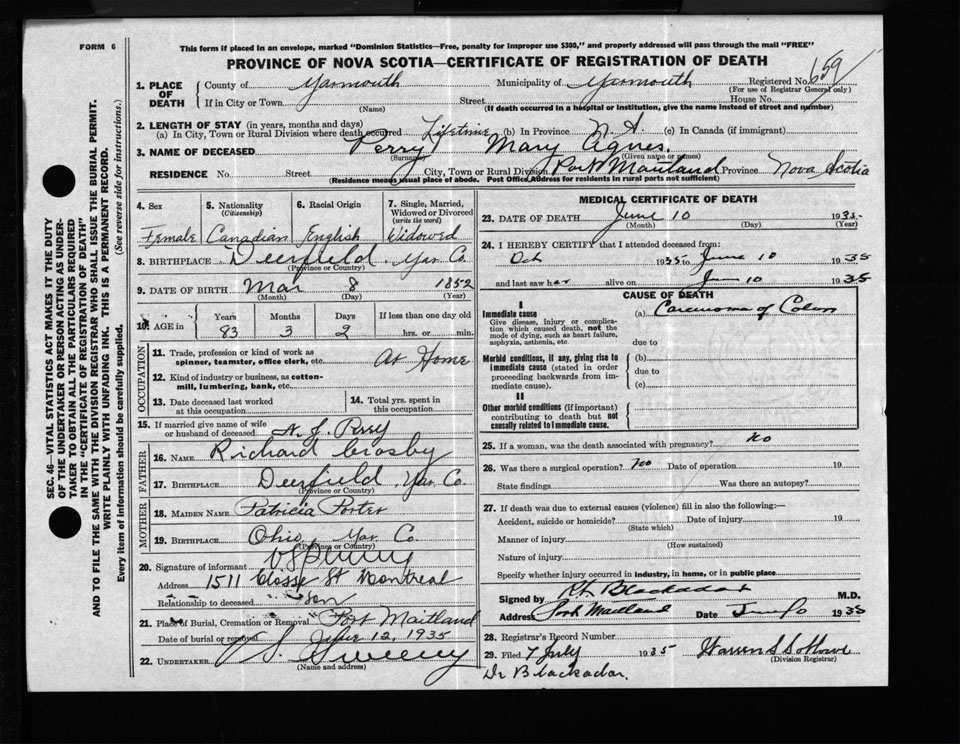 FORM 6
This form if placed in an envelope, marked "Dominion Statistics—Free, penalty for improper use $300," and properly addressed will pass through the mail "FREE"
PROVINCE OF NOVA SCOTIA—CERTIFICATE OF REGISTRATION OF DEATH
1. PLACE OF DEATH County of Yarmouth Municipality of Yarmouth Registered No. 659
(For use of Registrar General only)
If in City or Town (Name) Street House No.
(If death occurred in a hospital or institution, give the name instead of street and number)
2. LENGTH OF STAY (in years, months and days)
(a) In City, Town or Rural Division where death occurred Lifetime (b) In Province N. S. (c) In Canada (if immigrant)
3. NAME OF DECEASED Perry Mary Agnes.
(Surname) (Given name or names)
RESIDENCE No. Street City, Town or Rural Division Port Maitland Province Nova Scotia
(Residence means usual place of abode. Post Office Address for residents in rural parts not sufficient)
4. Sex Female
5. Nationality (Citizenship) Canadian
6. Racial Origin English
7. Single, Married, Widowed or Divorced (write the word) Widowed
8. BIRTHPLACE Deerfield. Yar. Co.
(Province or Country)
9. DATE OF BIRTH Mar 8 1852
(Month) (Day) (Year)
10. AGE in Years 83 Months 3 Days 2 If less than one day old hrs. or min.
OCCUPATION
11. Trade, profession or kind of work as spinner, teamster, office clerk, etc. At Home
12. Kind of industry or business, as cotton-mill, lumbering, bank, etc.
13. Date deceased last worked at this occupation
14. Total yrs. spent in this occupation
15. If married give name of wife or husband of deceased A. J. Perry
FATHER
16. NAME Richard Crosby
17. BIRTHPLACE Deerfield, Yar. Co.
(Province or Country)
MOTHER
18. MAIDEN NAME Patricia Porter
19. BIRTHPLACE Ohio, Yar. Co.
(Province or Country)
20. Signature of informant
Address 1511 Closse St Montreal
Relationship to deceased son
21. Place of Burial, Cremation or Removal Port Maitland
Date of burial or removal June 12, 1935
22. UNDERTAKER S. Sweeny
(Name and address)
MEDICAL CERTIFICATE OF DEATH
23. DATE OF DEATH June 10 1935
(Month) (Day) (Year)
24. I HEREBY CERTIFY that I attended deceased from:
Oct 1935 to June 10 1935
and last saw her alive on June 10 1935
CAUSE OF DEATH
I
Immediate cause (a) Carcinoma of Colon
Give disease, injury or complication which caused death, not the mode of dying, such as heart failure, asphyxia, asthenia, etc.
due to
Morbid conditions, if any, giving rise to immediate cause (stated in order proceeding backwards from immediate cause).
(b)
due to
(c)
II
Other morbid conditions (if important) contributing to death but not causally related to immediate cause.
25. If a woman, was the death associated with pregnancy? No
26. Was there a surgical operation? No Date of operation 19
State findings Was there an autopsy?
27. If death was due to external causes (violence) fill in also the following:—
Accident, suicide or homicide? Date of injury 19
(State which)
Manner of injury
(How sustained)
Nature of injury
Specify whether injury occurred in industry, in home, or in public place
Signed by Blackadar M.D.
Address Port Maitland Date 1935
28. Registrar's Record Number
29. Filed 7 July 1935
(Division Registrar)
Dr Blackadar.
SEC. 46—VITAL STATISTICS ACT MAKES IT THE DUTY
OF THE UNDERTAKER OR PERSON ACTING AS UNDER-
TAKER TO OBTAIN ALL THE PARTICULARS REQUIRED
IN THE "CERTIFICATE OF REGISTRATION OF DEATH"
AND TO FILE THE SAME WITH THE DIVISION REGISTRAR WHO SHALL ISSUE THE BURIAL PERMIT.
WRITE PLAINLY WITH UNFADING INK. THIS IS A PERMANENT RECORD.
Every item of information should be carefully supplied. (See reverse side for instructions.)